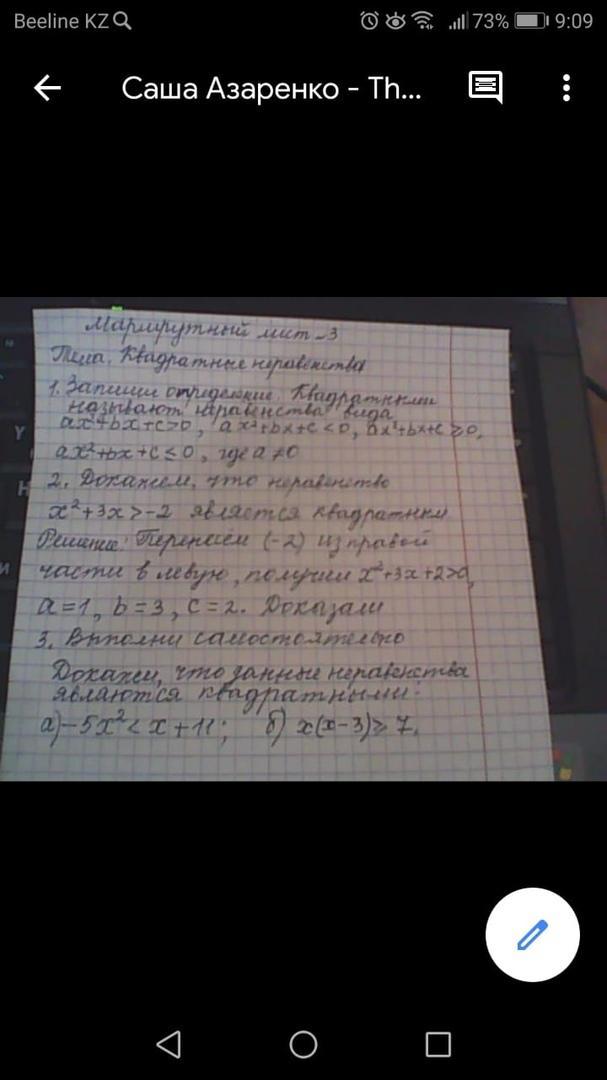 Beeline KZ 73% 9:09
Саша Азаренко - Th...
Маршрутный лист-3
Тема. Квадратные неравенства
1. Запиши определение. Квадратными
называют неравенства вида
ax²+bx+c>0, ax²+bx+c<0, ax²+bx+c≥0,
ax²+bx+c≤0, где a≠0
2. Докажем, что неравенство
x²+3x>-2 является квадратным
Решение: Перенесём (-2) из правой
части в левую, получим x²+3x+2>0,
a=1, b=3, c=2. Доказали
3. Выполни самостоятельно
Докажи, что данные неравенства
являются квадратными:
а)-5x²<x+11; б) x(x-3)≥7.